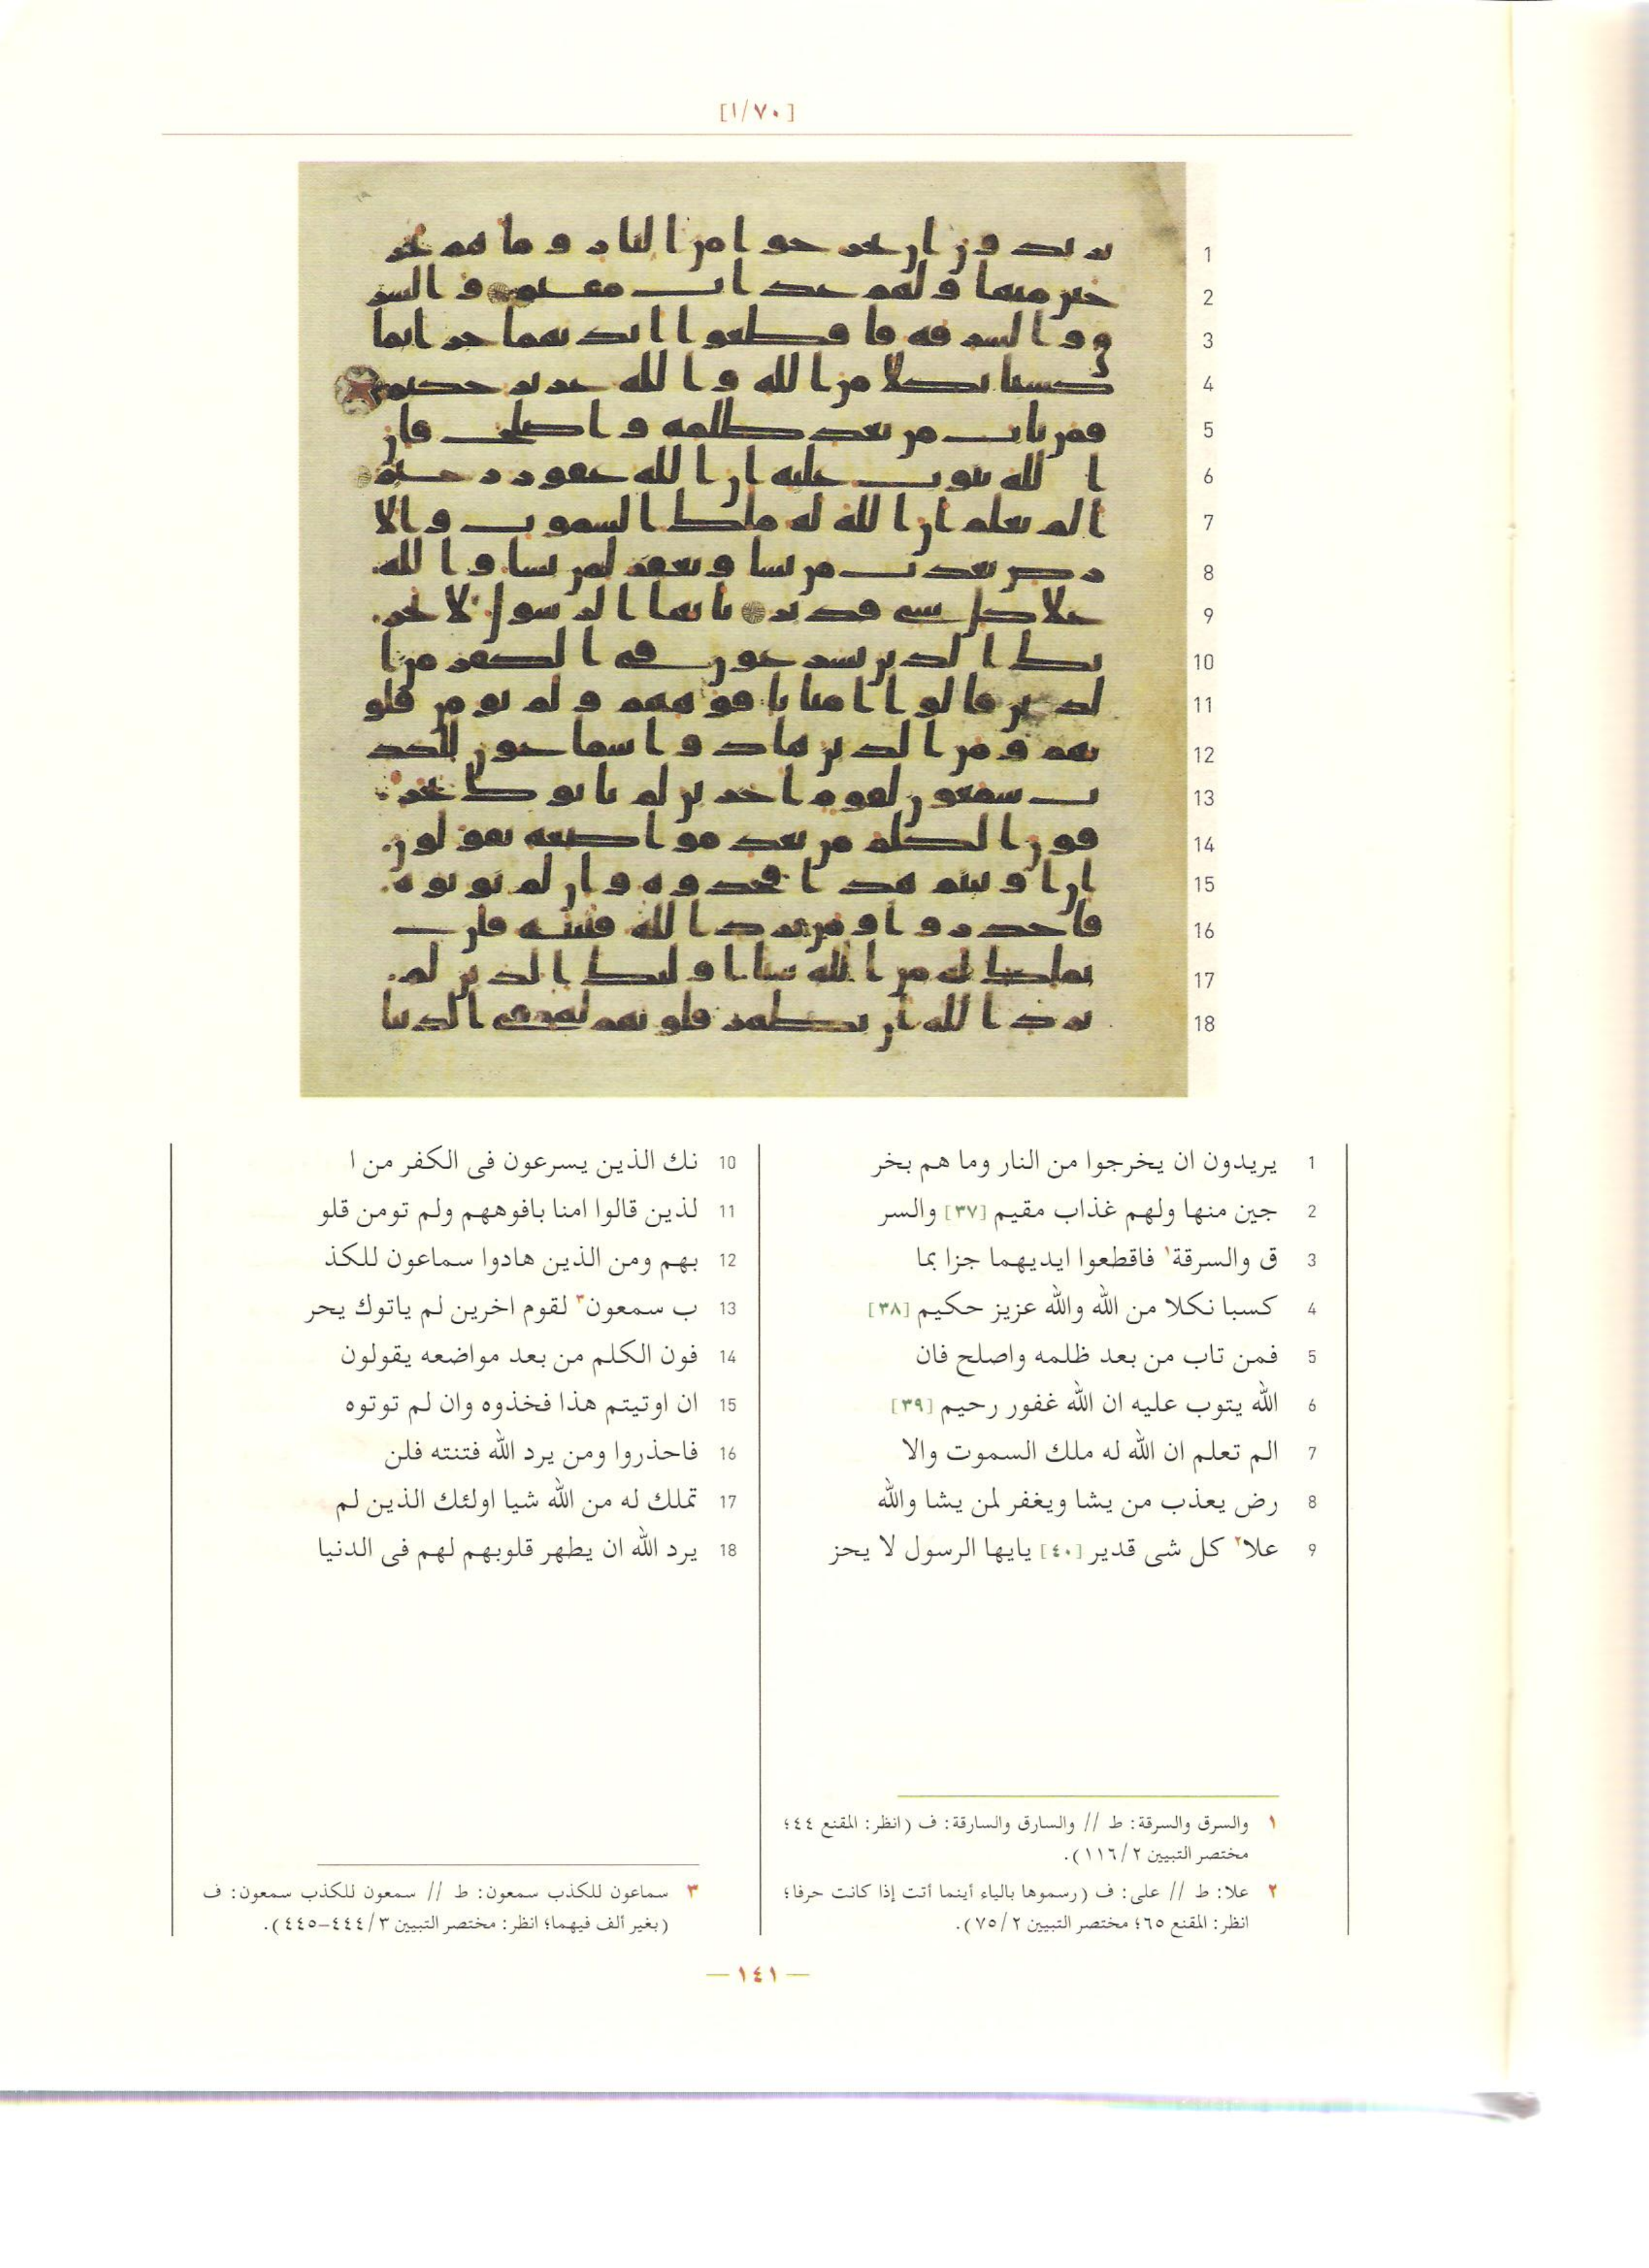 [١/٧٠]
1 يريدون ان يخرجوا من النار وما هم بخر
2 جين منها ولهم عذاب مقيم [٣٧] والسر
3 ق والسرقة١ فاقطعوا ايديهما جزا بما
4 كسبا نكلا من الله والله عزيز حكيم [٣٨]
5 فمن تاب من بعد ظلمه واصلح فان
6 الله يتوب عليه ان الله غفور رحيم [٣٩]
7 الم تعلم ان الله له ملك السموت والا
8 رض يعذب من يشا ويغفر لمن يشا والله
9 علا٢ كل شى قدير [٤٠] يايها الرسول لا يحز
10 نك الذين يسرعون فى الكفر من ا
11 لذين قالوا امنا بافوههم ولم تومن قلو
12 بهم ومن الذين هادوا سماعون للكذ
13 ب سمعون٣ لقوم اخرين لم ياتوك يحر
14 فون الكلم من بعد مواضعه يقولون
15 ان اوتيتم هذا فخذوه وان لم توتوه
16 فاحذروا ومن يرد الله فتنته فلن
17 تملك له من الله شيا اولئك الذين لم
18 يرد الله ان يطهر قلوبهم لهم فى الدنيا
١ والسرق والسرقة: ط // والسارق والسارقة: ف (انظر: المقنع ٤٤؛
مختصر التبيين ١١٦/٢).
٢ علا: ط // على: ف (رسموها بالياء أينما أتت إذا كانت حرفا؛
انظر: المقنع ٦٥؛ مختصر التبيين ٧٥/٢).
٣ سماعون للكذب سمعون: ط // سمعون للكذب سمعون: ف
(بغير ألف فيهما؛ انظر: مختصر التبيين ٤٤٤/٣-٤٤٥).
— ١٤١ —